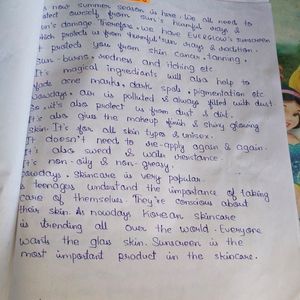 As now summer season is here. We all need to
protect ourself from sun's harmful rays &
sun's damage. Therefore, we have EVERGLOW's sunscreen
which protect us from harmful sun rays & radiation.
It protect you from skin cancer, tanning,
Sun-burns, redness and itching etc.
It's magical ingredients will also help to
fade acne marks, dark spots, pigmentation etc.
Nowadays, air is polluted & always filled with dust.
So, it's also protect us from dust & dirt.
It's also give the makeup finish & shiny glowing
skin. It's for all skin types & unisex.
It doesn't need to re-apply again & again.
It's also sweed & water resistance.
It's non-oily & non-greasy.
Nowadays, Skincare is very popular.
As teenagers understand the importance of taking
care of themselves. They're conscious about
their skin. As nowdays Korean skincare
is trending all over the world. Everyone
wants the glass skin. Sunscreen is the
most important product in the skincare.